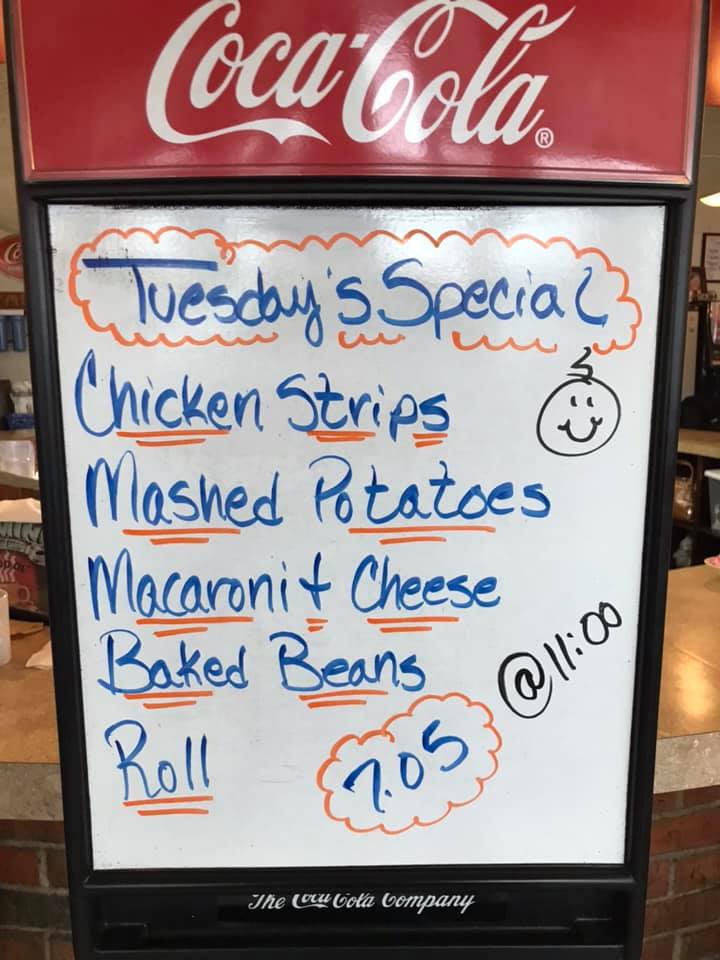 Coca-Cola®
Tuesday's Special
Chicken Strips
Mashed Potatoes
Macaroni + Cheese
Baked Beans
@11:00
Roll
7.05
The Coca Cola Company